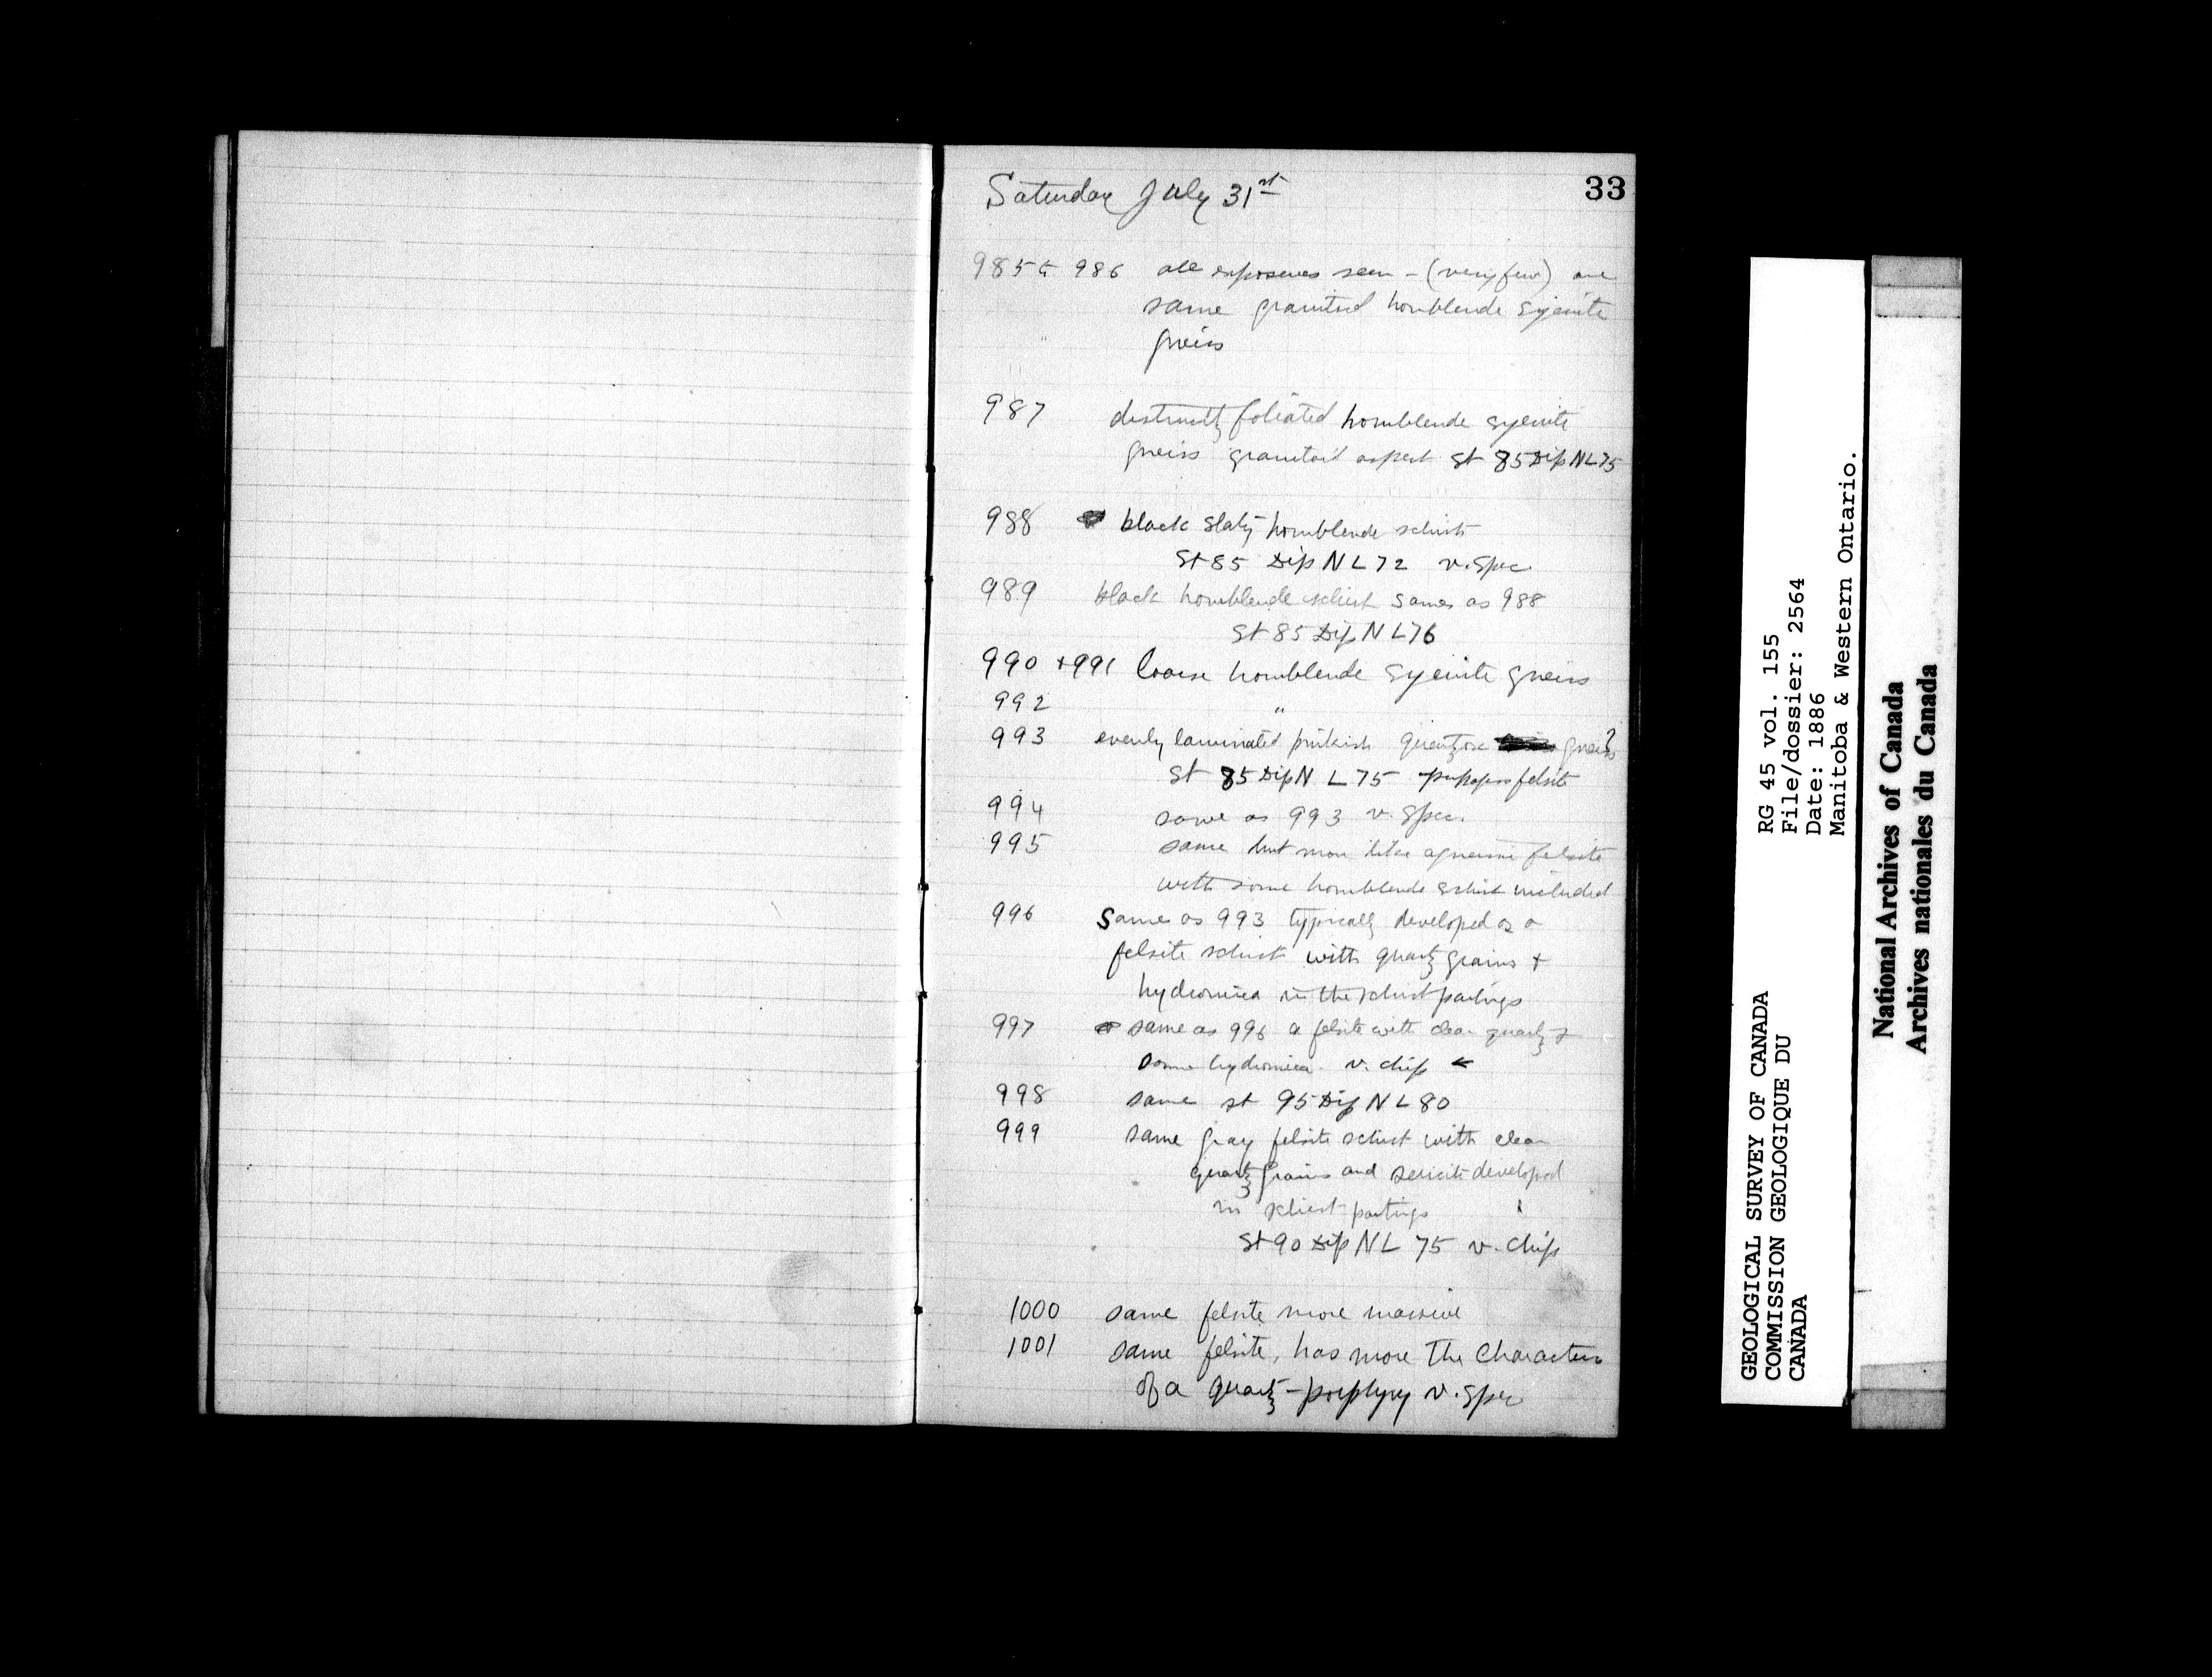 33
Saturday July 31st
985 to 986 all exposures seen - (very few) are
same granitoid hornblende syenite
gneiss
987 distinctly foliated hornblende syenite
gneiss granitoid aspect St 85 Dip N L 75
988 black slaty hornblende schist
St 85 Dip N L 72 v. Spec
989 black hornblende schist same as 988
St 85 Dip N L 76
990 + 991 Coarse hornblende syenite gneiss
992 "
993 evenly laminated pinkish quartzose gneiss?
St 85 Dip N L 75 felsite
994 same as 993 v. Spec.
995 same but more like a felsite
with some hornblende schist included
996 Same as 993 typically developed as a
felsite schist with quartz grains +
hydromica in the schist partings
997 same as 996 a felsite with clear quartz &
some hydromica v. chip ←
998 same st 95 Dip N L 80
999 same gray felsite schist with clear
quartz grains and sericite developed
in schist partings
St 90 Dip N L 75 v. Chip
1000 same felsite more massive
1001 same felsite, has more the character
of a quartz-porphyry v. Spec
GEOLOGICAL SURVEY OF CANADA
COMMISSION GEOLOGIQUE DU
CANADA
RG 45 vol. 155
File/dossier: 2564
Date: 1886
Manitoba & Western Ontario.
National Archives of Canada
Archives nationales du Canada